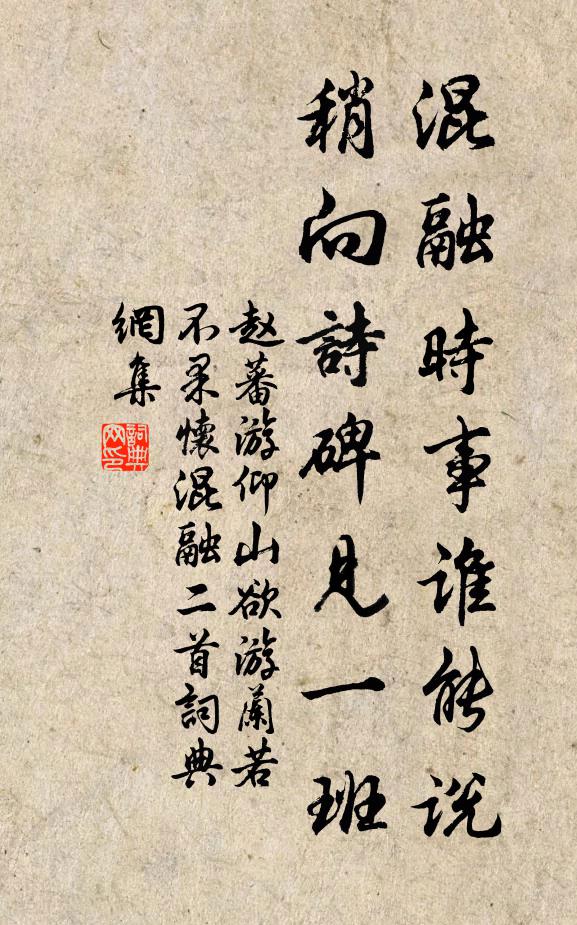 混融時事誰能說
稍向詩碑見一班
赵蕃游仰山欲游蘭若
不果懷混融二首詞典
網集
詞典
网印